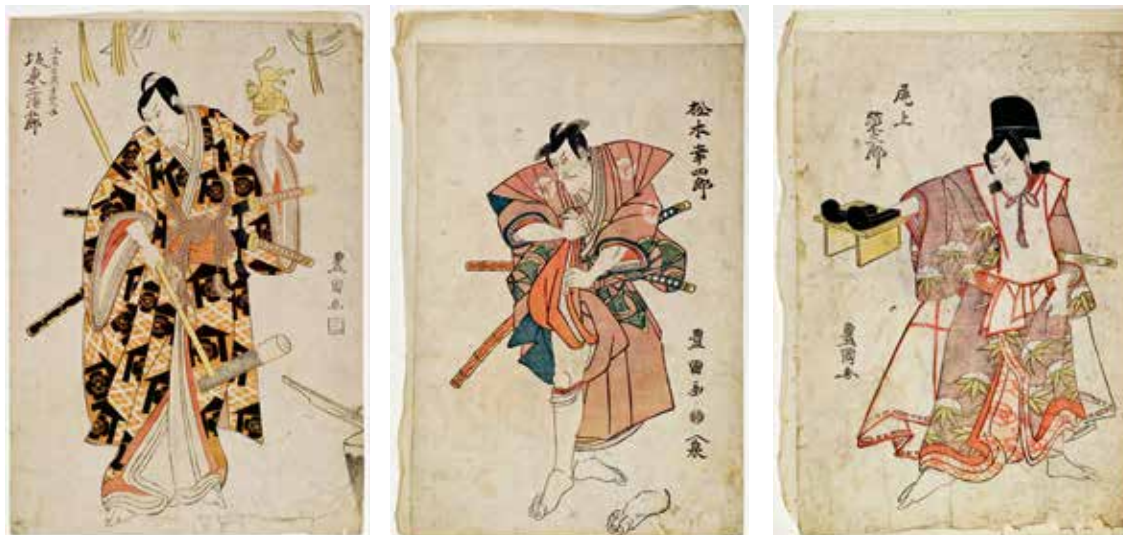 坂東三津五郎
豊國画
松本幸四郎
豊國画
尾上
榮三郎
豊國画